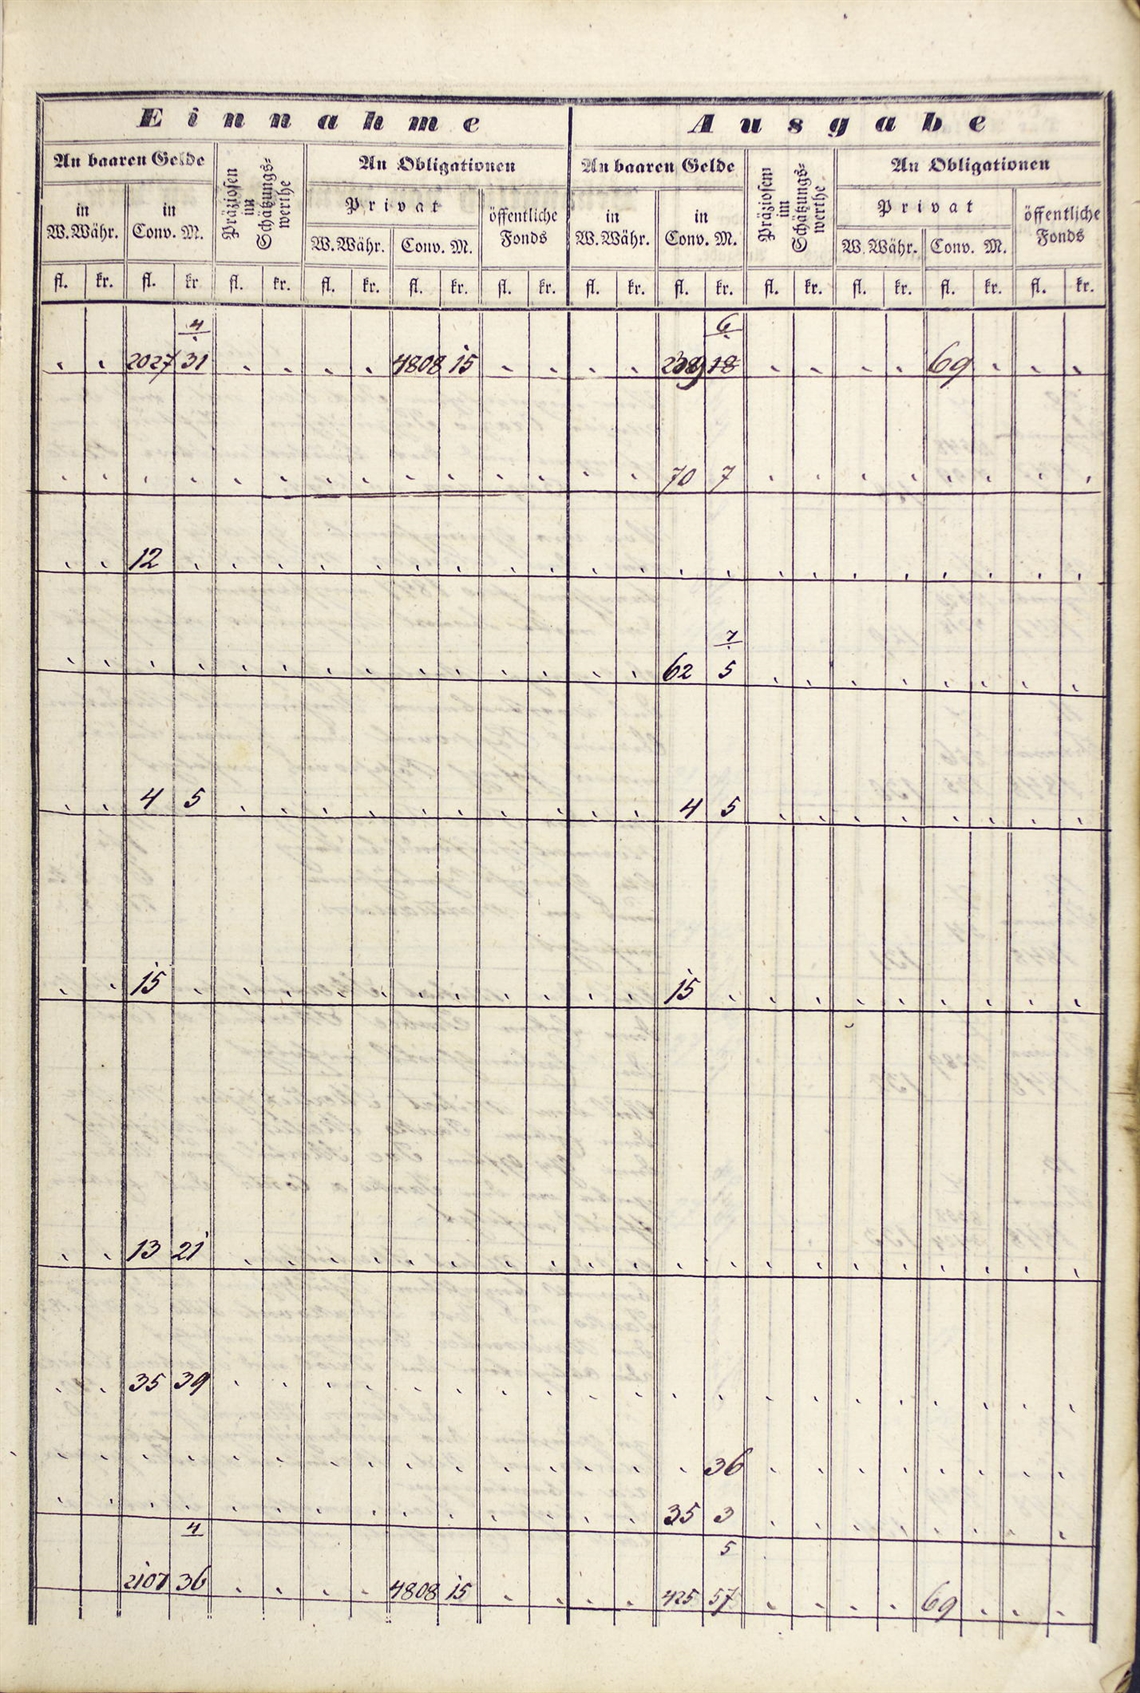 Einnahme Ausgabe
An baaren Gelde Präziosen im Schätzungs-werthe An Obligationen An baaren Gelde Präziosem im Schätzungs-werthe An Obligationen
in W. Währ. in Conv. M. Privat öffentliche Fonds in W. Währ. in Conv. M. Privat öffentliche Fonds
W. Währ. Conv. M. W. Währ. Conv. M.
fl. kr. fl. kr fl. kr. fl. kr. fl. kr. fl. kr. fl. kr. fl. kr. fl. kr. fl. kr. fl. kr. fl. kr.
4 6
2027 31 4808 15 18 69
70 7
12
7
62 5
4 5 4 5
15 15
13 21
35 39
36
35 3
4 5
2107 36 4808 15 425 57 69